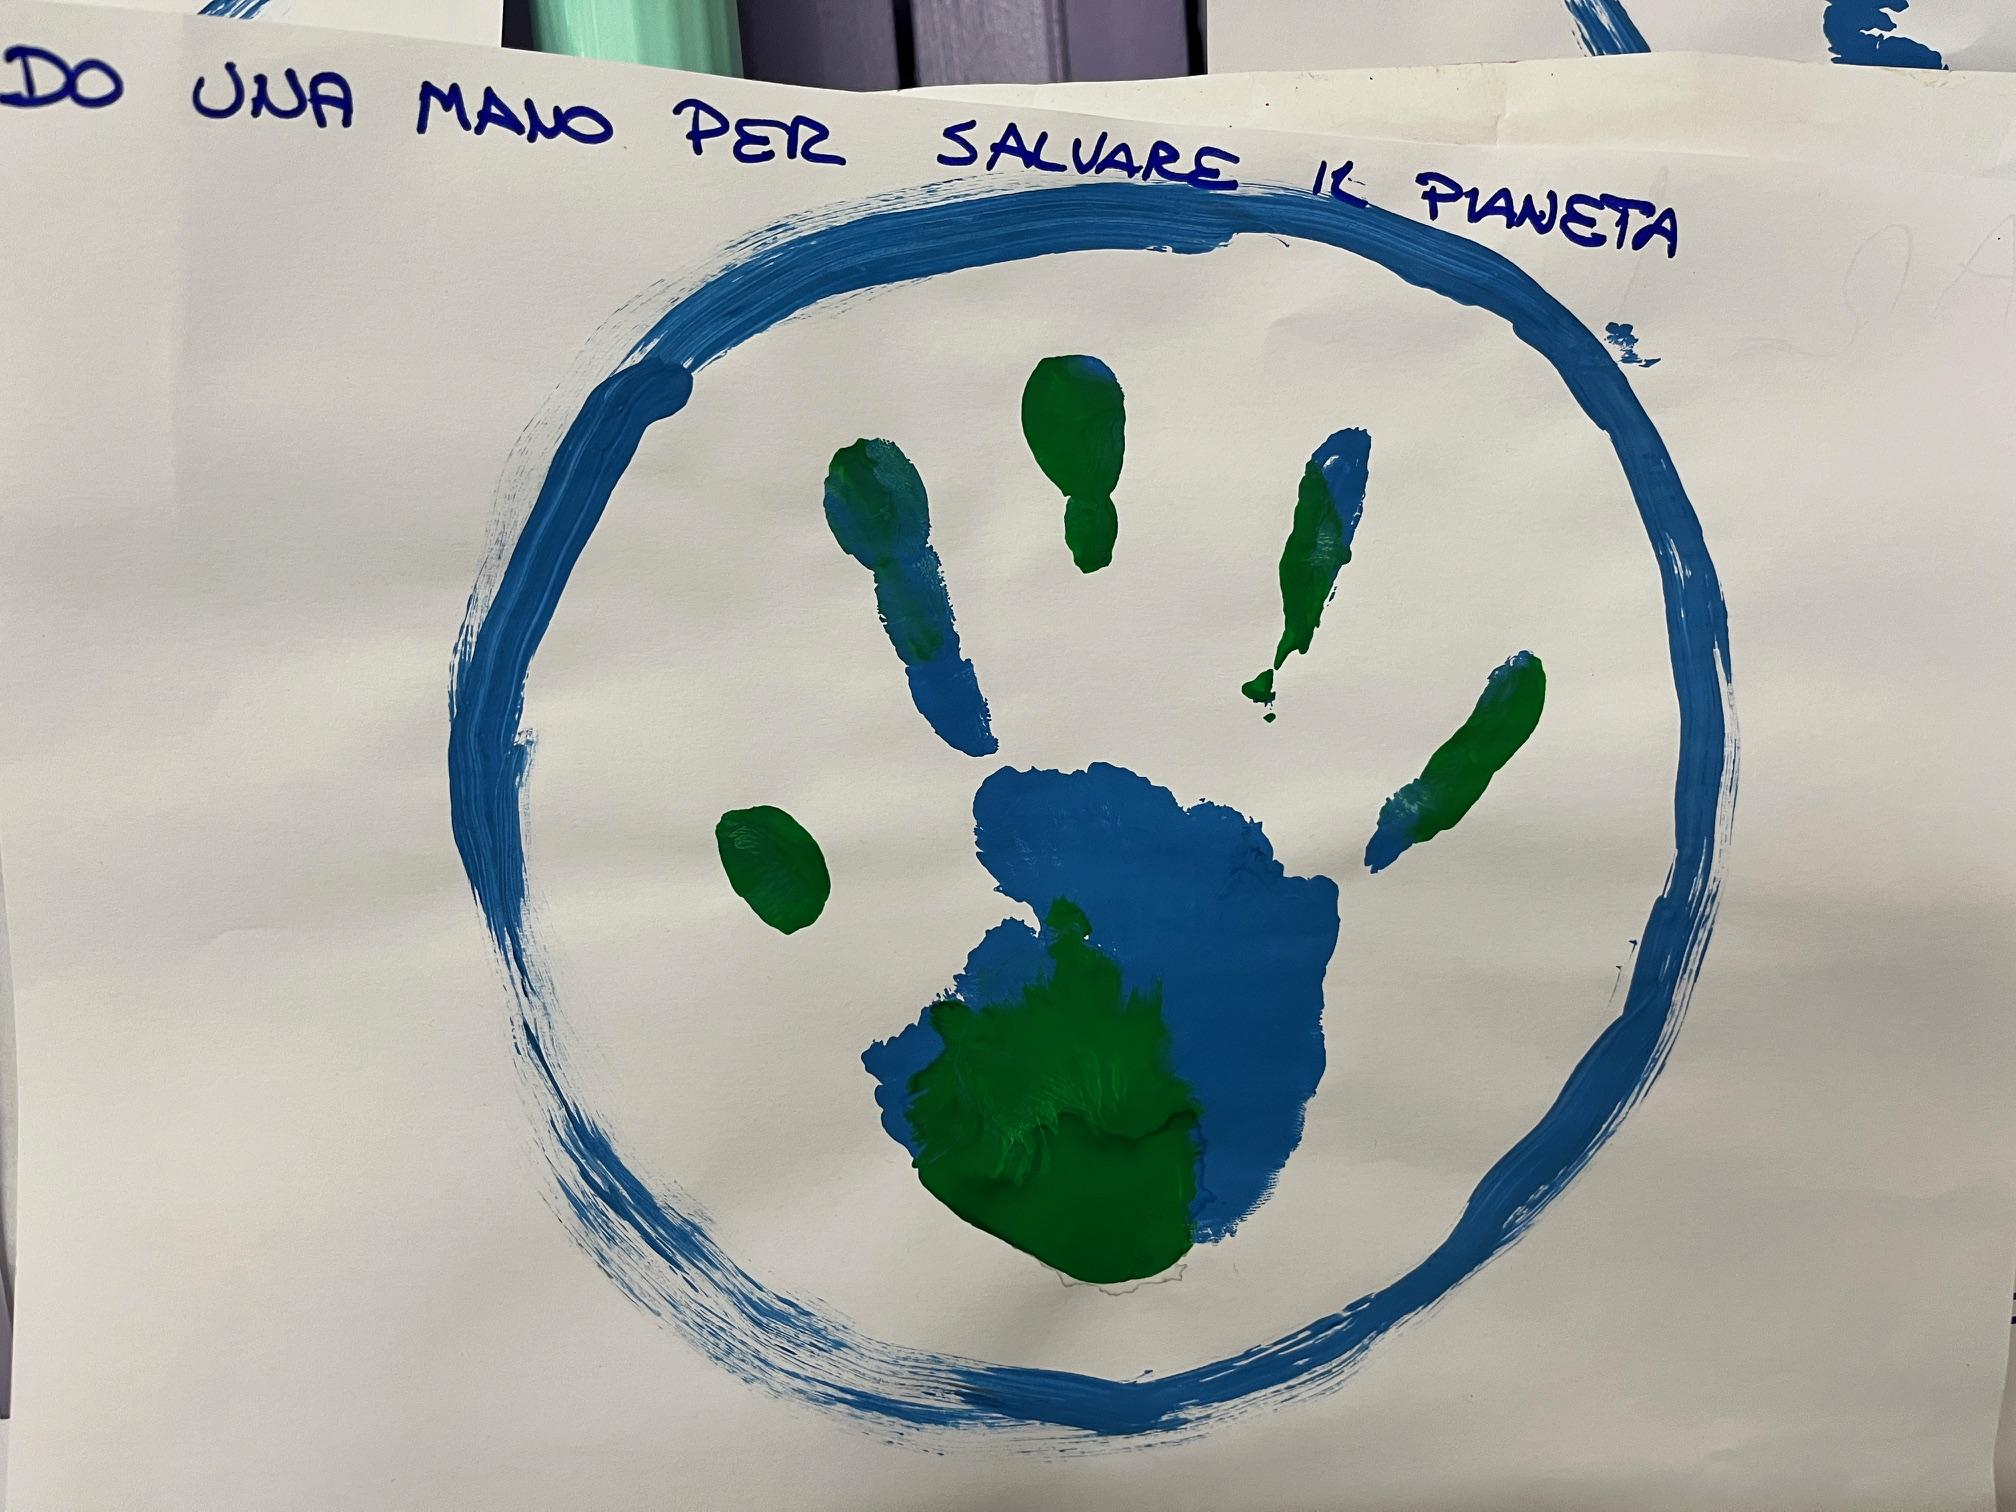 DO UNA MANO PER SALVARE IL PIANETA